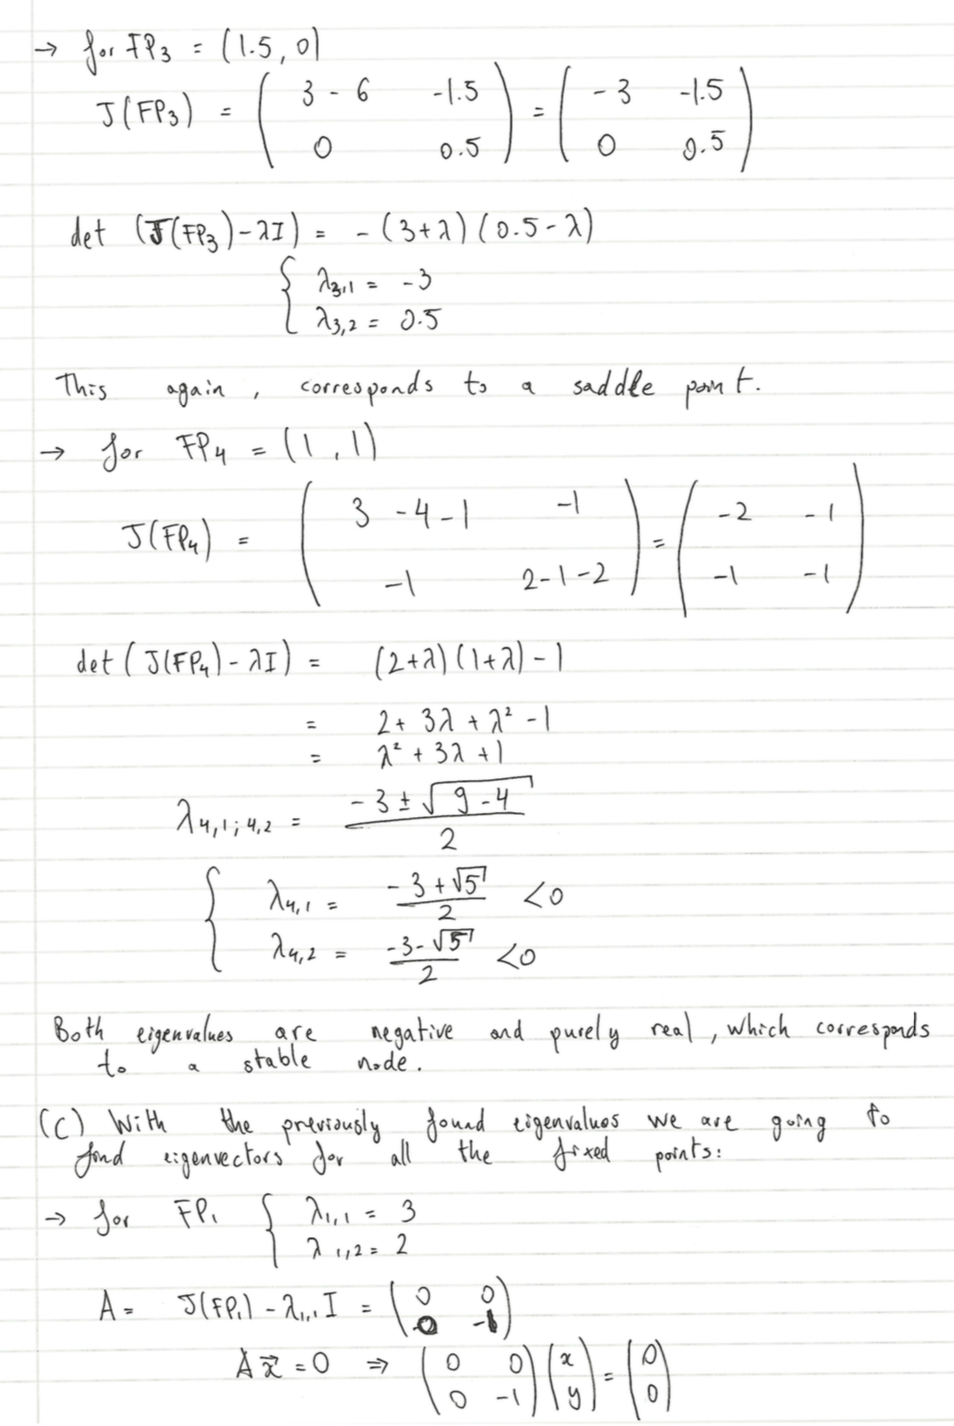 → for FP₃ = (1.5, 0)
J(FP₃) = ( 3 - 6   -1.5 ; 0   0.5 ) = ( -3   -1.5 ; 0   0.5 )
det (J(FP₃) - λI) = - (3+λ)(0.5 - λ)
{ λ₃,₁ = -3
λ₃,₂ = 0.5
This again, corresponds to a saddle point.
→ for FP₄ = (1, 1)
J(FP₄) = ( 3 - 4 - 1   -1 ; -1   2-1-2 ) = ( -2   -1 ; -1   -1 )
det (J(FP₄) - λI) = (2+λ)(1+λ) - 1
= 2 + 3λ + λ² - 1
= λ² + 3λ + 1
λ₄,₁;₄,₂ = (-3 ± √(9 - 4)) / 2
{ λ₄,₁ = (-3 + √5) / 2 < 0
λ₄,₂ = (-3 - √5) / 2 < 0
Both eigenvalues are negative and purely real, which corresponds
to a stable node.
(C) With the previously found eigenvalues we are going to
find eigenvectors for all the fixed points:
→ for FP₁ { λ₁,₁ = 3
λ₁,₂ = 2
A = J(FP₁) - λ₁,₁ I = ( 0   0 ; 0   -1 )
Ax⃗ = 0 ⇒ ( 0   0 ; 0   -1 ) ( x ; y ) = ( 0 ; 0 )